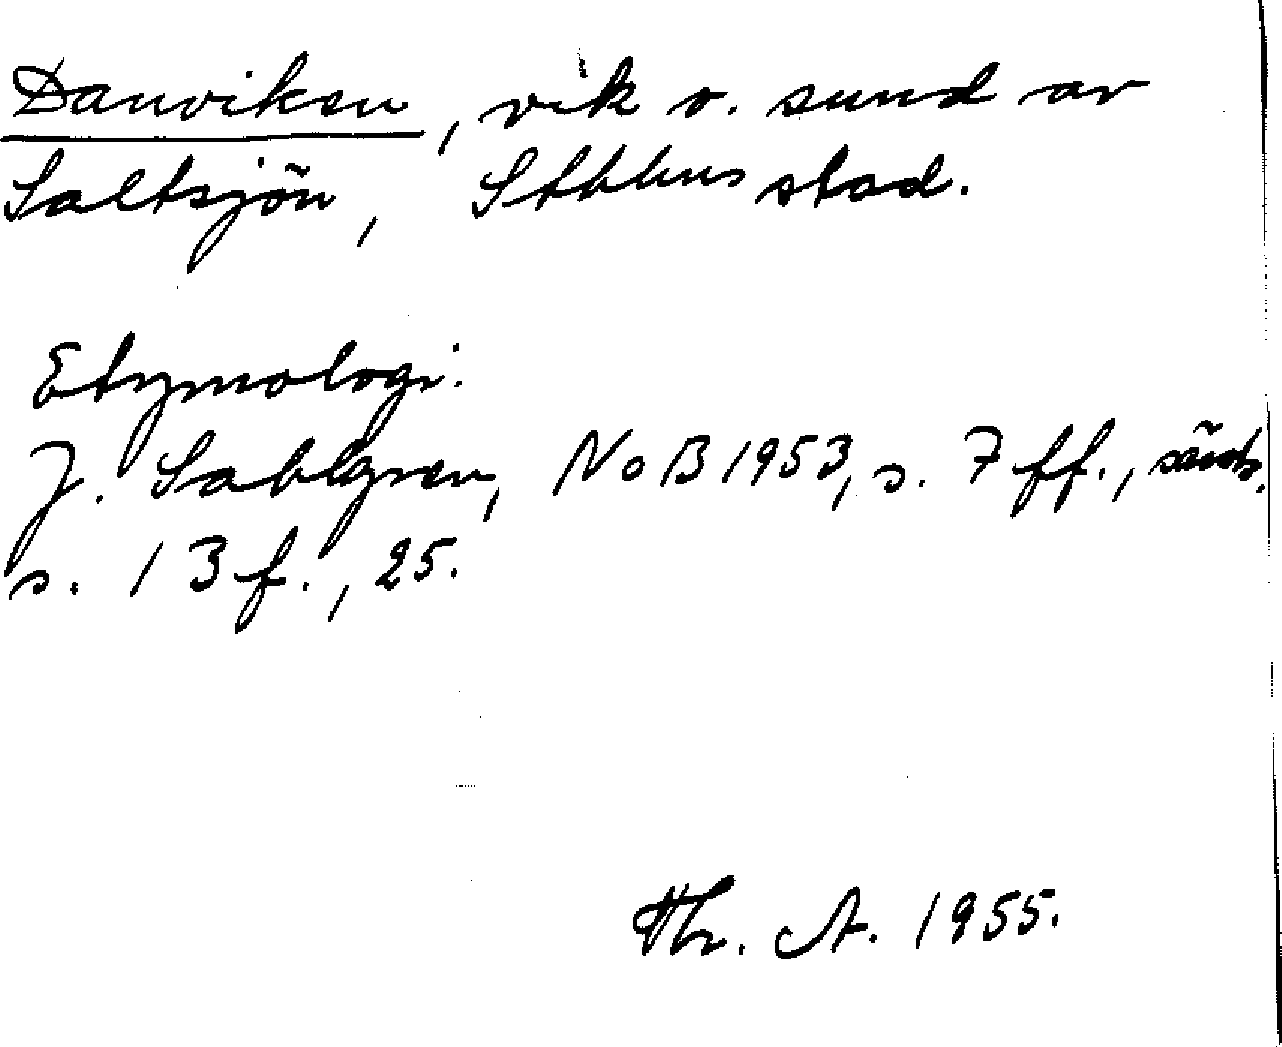 Danviken, vik o. sund av
Saltsjön, Sthlms stad.
Etymologi:
J. Sahlgren, NoB 1953, s. 7 ff., särsk.
s. 13 f., 25.
Thr. A. 1955.